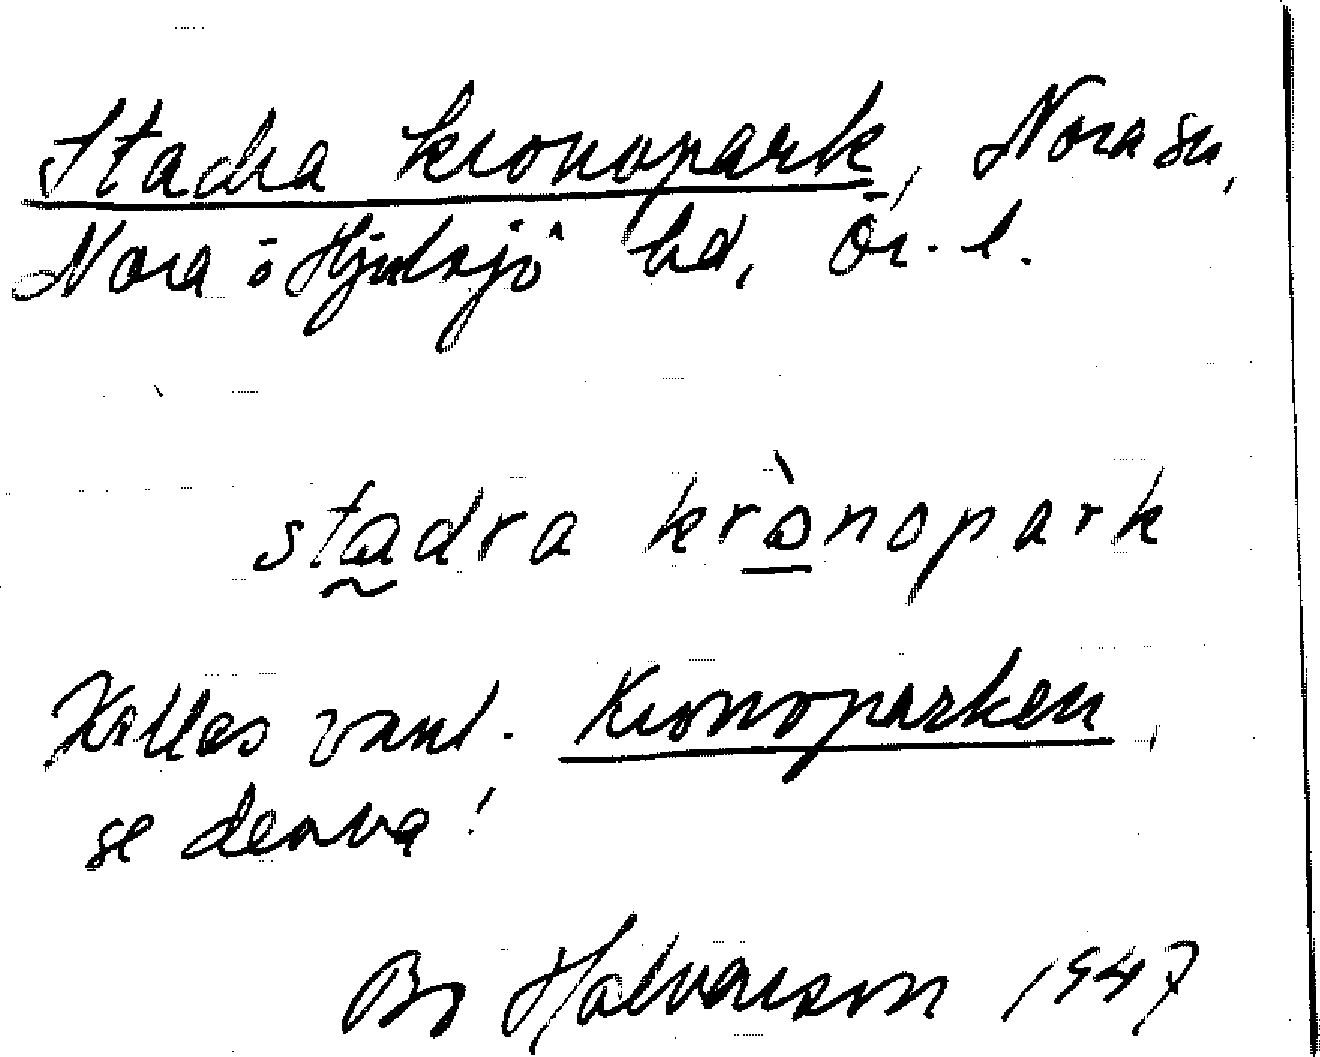 Stadra kronopark, Nora sn,
Nora o Hjulsjö hd, Ör. l.
stadra krònopark
Kallas vanl. Kronoparken,
se denna!
Bo Halvarson 1947